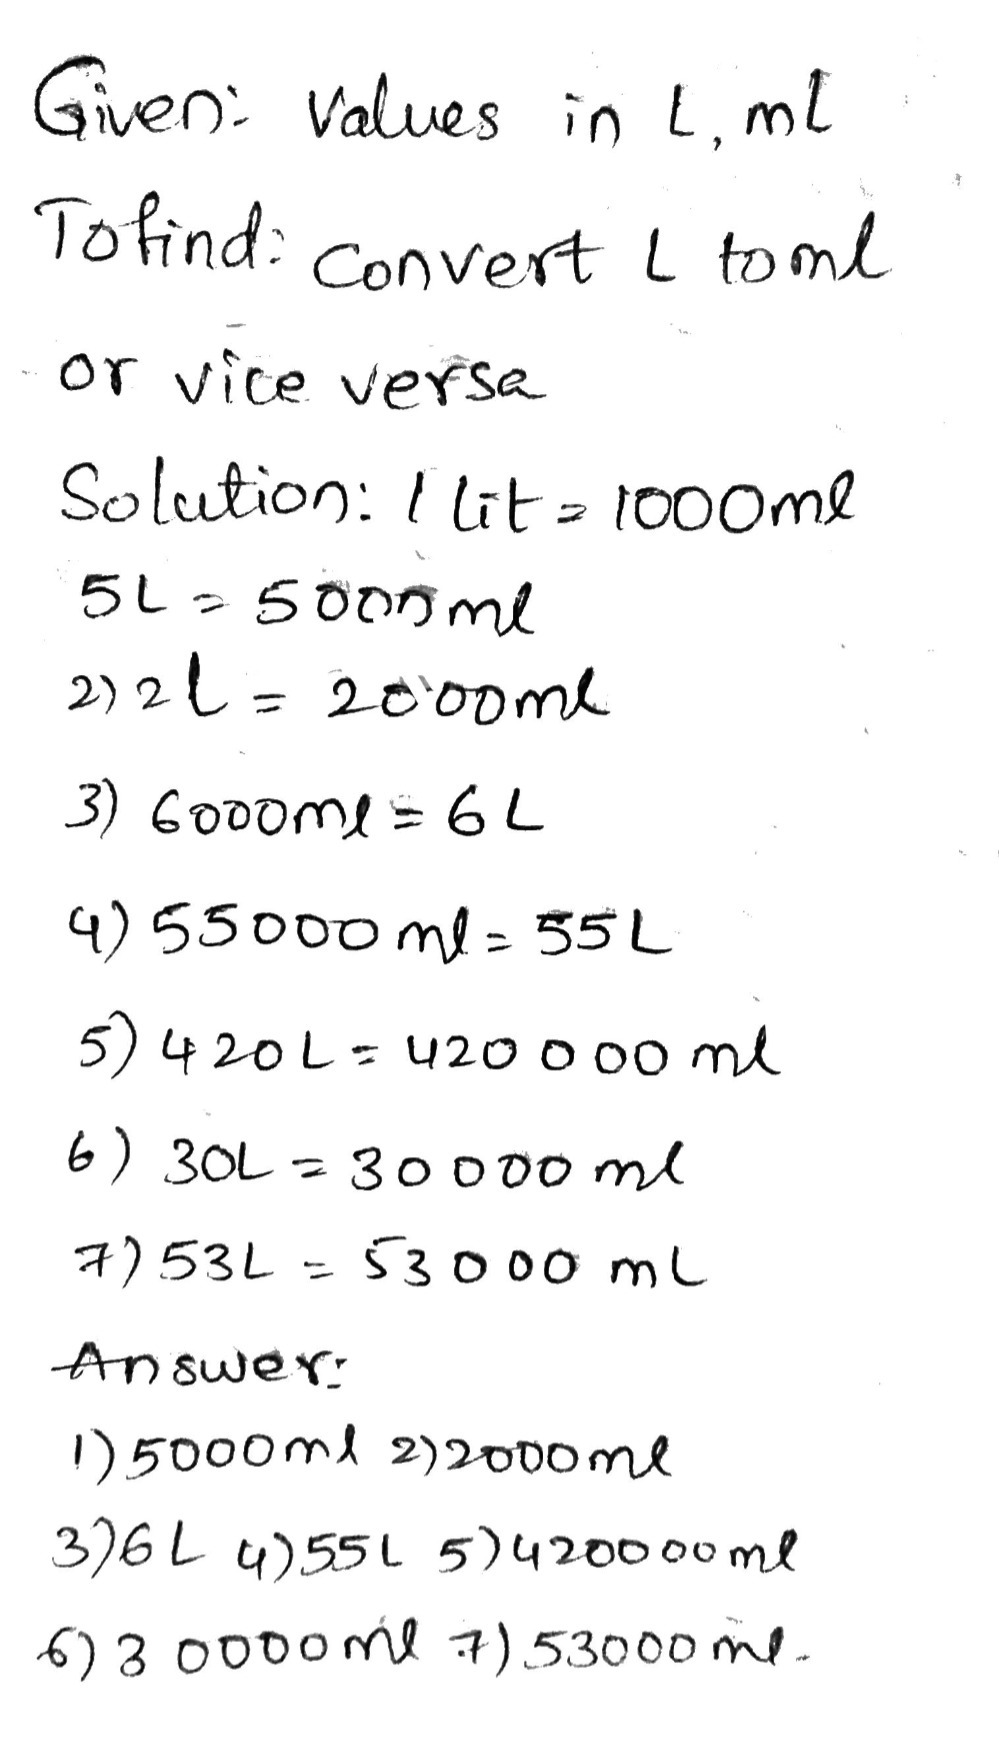 Given: Values in L, ml
To find: Convert L to ml
or vice versa
Solution: 1 lit = 1000ml
5L = 5000ml
2) 2l = 2000ml
3) 6000ml = 6L
4) 55000 ml = 55L
5) 420L = 420000 ml
6) 30L = 30000 ml
7) 53L = 53000 mL
Answer:
1) 5000ml 2) 2000ml
3) 6L 4) 55L 5) 420000ml
6) 30000ml 7) 53000ml.